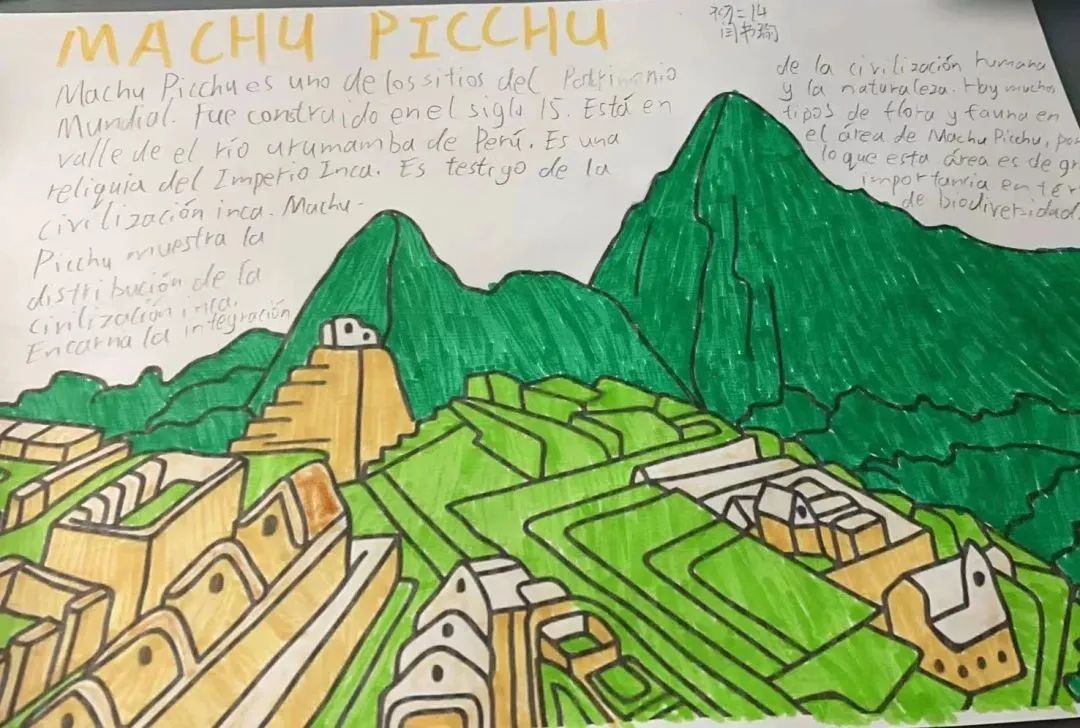 MACHU PICCHU
初二14
闫书瑜
Machu Picchu es uno de los sitios del Patrimonio
Mundial. Fue construido en el siglo 15. Está en
valle de el río urumamba de Perú. Es una
reliquia del Imperio Inca. Es testigo de la
civilización inca. Machu-
Picchu muestra la
distribución de la
civilización inca.
Encarna la integración
de la civilización humana
y la naturaleza. Hay muchos
tipos de flora y fauna en
el área de Machu Picchu, por
lo que esta área es de gr
importancia en tér
de biodiversidad